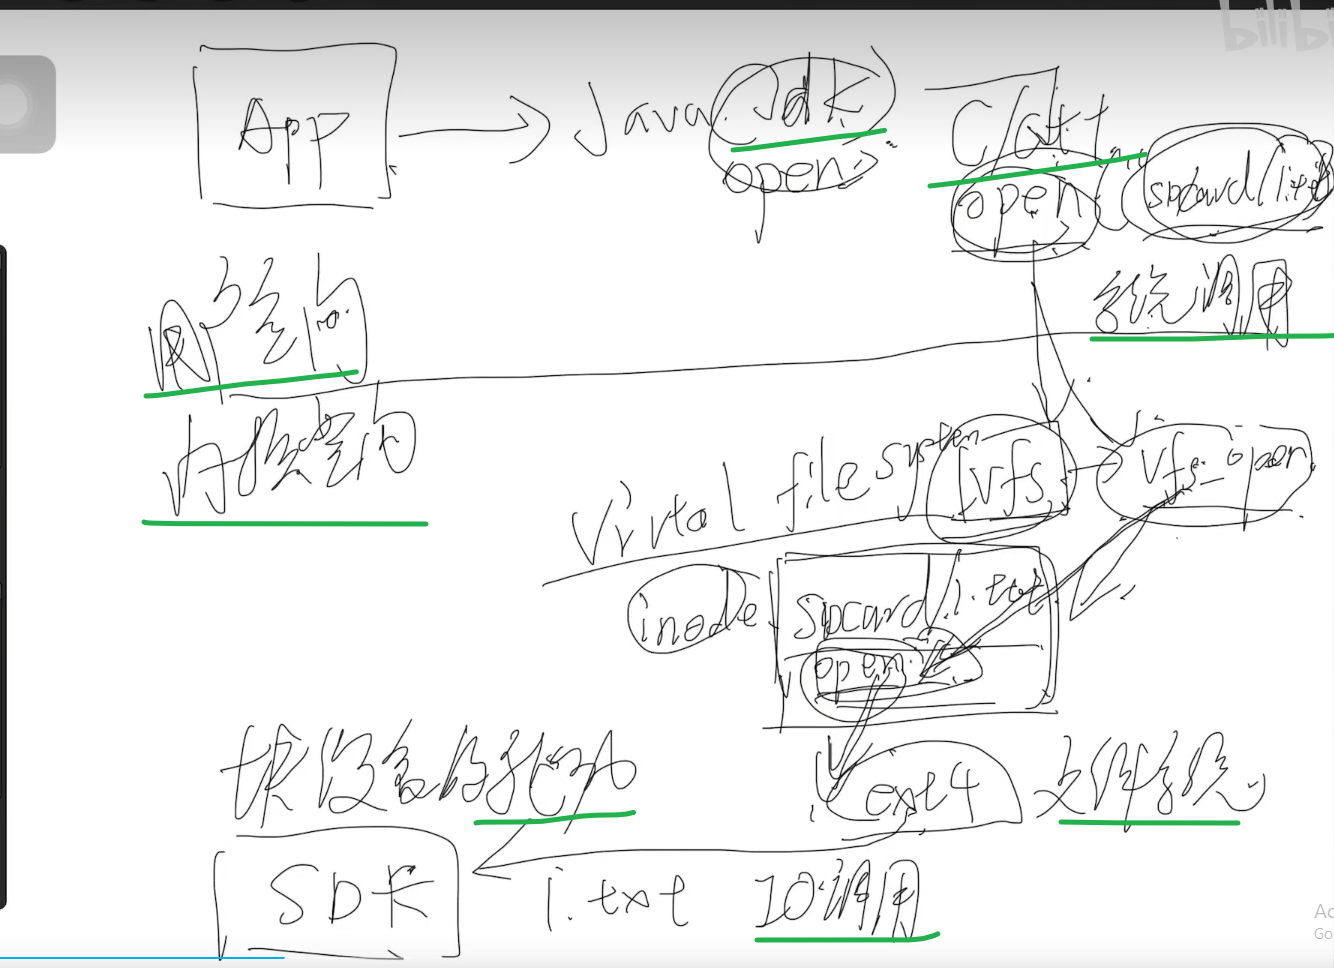 bilibi
App → Java Jdk C/C++
open open sdcard/1.txt
用户空间 系统调用
内核空间
Virtal file system vfs → vfs_open
inode sdcard/1.txt
open
块设备的驱动 ext4 文件系统
SD卡 1.txt IO调用
Ac
Go